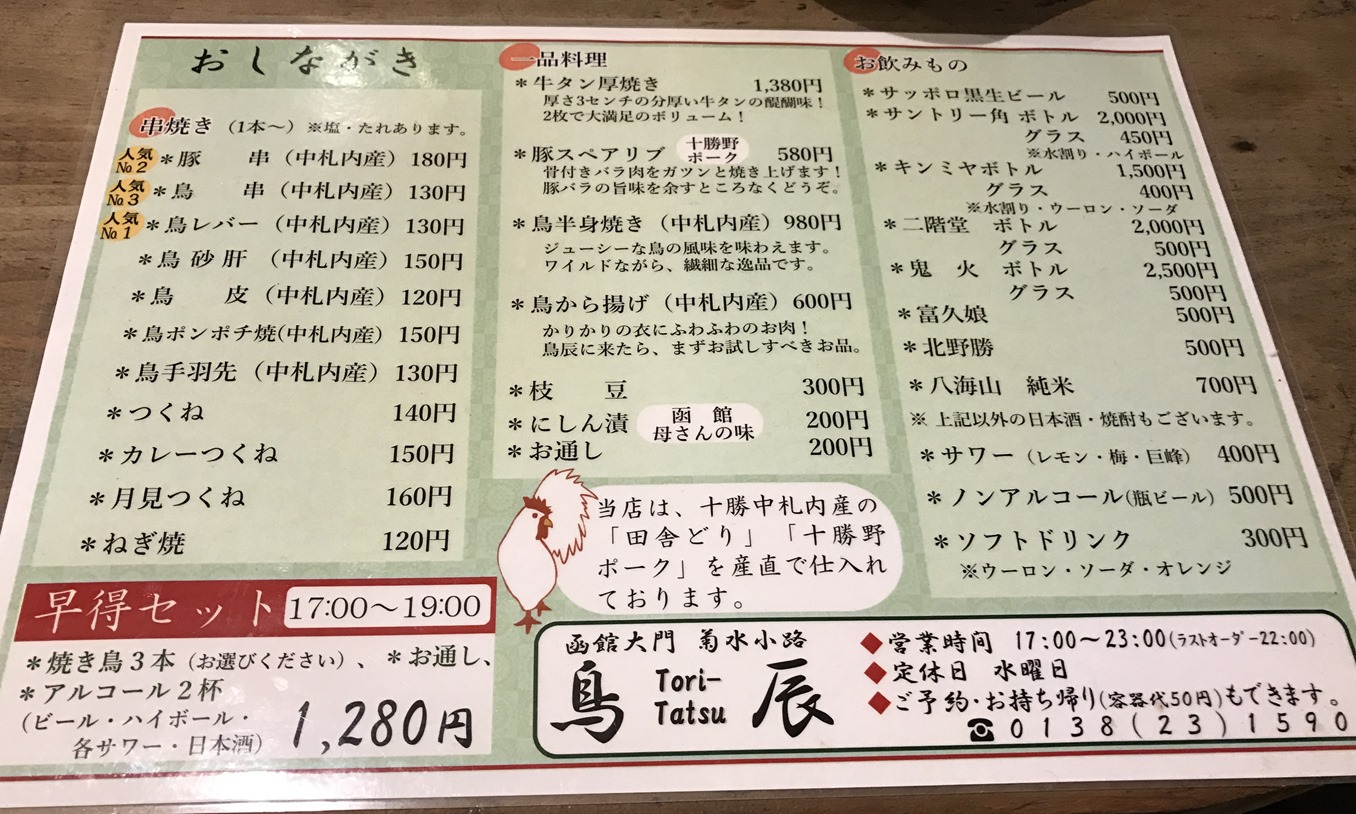 おしながき
串焼き（1本～）※塩・たれあります。
人気№2 ＊豚　串（中札内産）180円
人気№3 ＊鳥　串（中札内産）130円
人気№1 ＊鳥レバー（中札内産）130円
＊鳥砂肝（中札内産）150円
＊鳥　皮（中札内産）120円
＊鳥ポンポチ焼(中札内産) 150円
＊鳥手羽先（中札内産）130円
＊つくね 140円
＊カレーつくね 150円
＊月見つくね 160円
＊ねぎ焼 120円
早得セット 17:00～19:00
＊焼き鳥３本（お選びください）、＊お通し、
＊アルコール２杯
（ビール・ハイボール・
各サワー・日本酒）
1,280円
一品料理
＊牛タン厚焼き 1,380円
厚さ3センチの分厚い牛タンの醍醐味！
2枚で大満足のボリューム！
＊豚スペアリブ 十勝野ポーク 580円
骨付きバラ肉をガツンと焼き上げます！
豚バラの旨味を余すところなくどうぞ。
＊鳥半身焼き（中札内産）980円
ジューシーな鳥の風味を味わえます。
ワイルドながら、繊細な逸品です。
＊鳥から揚げ（中札内産）600円
かりかりの衣にふわふわのお肉！
鳥辰に来たら、まずお試しすべきお品。
＊枝　豆 300円
＊にしん漬 函館母さんの味 200円
＊お通し 200円
当店は、十勝中札内産の
「田舎どり」「十勝野
ポーク」を産直で仕入れ
ております。
お飲みもの
＊サッポロ黒生ビール 500円
＊サントリー角 ボトル 2,000円
グラス 450円
※水割り・ハイボール
＊キンミヤボトル 1,500円
グラス 400円
※水割り・ウーロン・ソーダ
＊二階堂 ボトル 2,000円
グラス 500円
＊鬼　火 ボトル 2,500円
グラス 500円
＊富久娘 500円
＊北野勝 500円
＊八海山　純米 700円
※ 上記以外の日本酒・焼酎もございます。
＊サワー（レモン・梅・巨峰） 400円
＊ノンアルコール(瓶ビール) 500円
＊ソフトドリンク 300円
※ウーロン・ソーダ・オレンジ
函館大門　菊水小路
鳥辰
Tori-
Tatsu
◆営業時間 17:00～23:00(ラストオーダー22:00)
◆定休日 水曜日
◆ご予約・お持ち帰り(容器代50円)もできます。
☎0138(23)1590